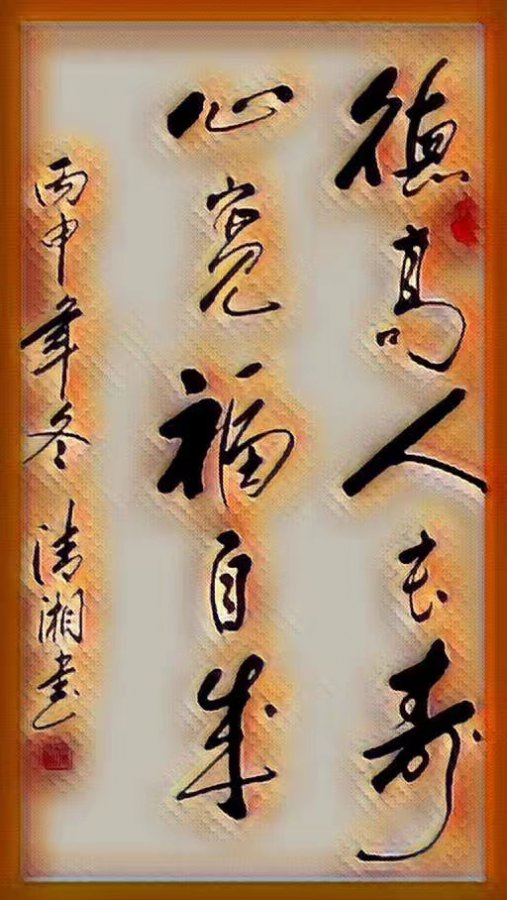 德高人长寿
心宽福自来
丙申年冬 清湘書